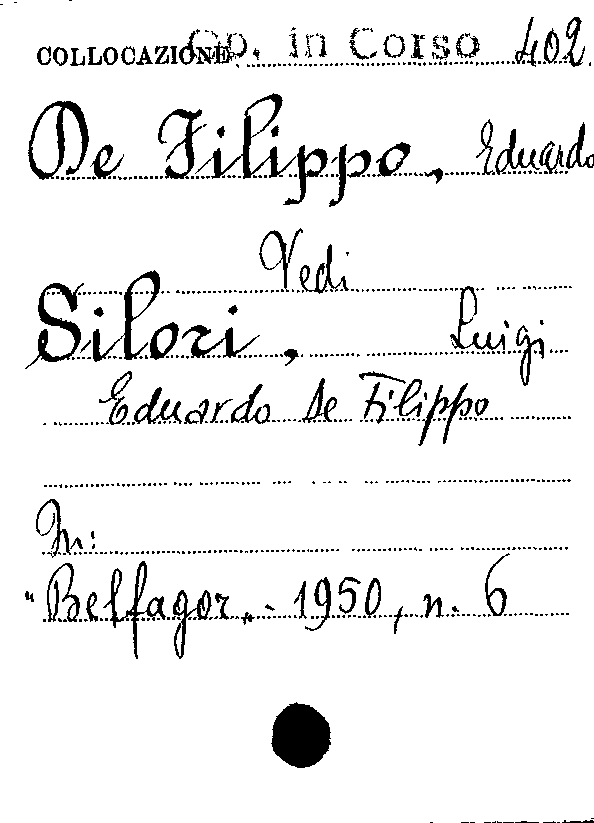 COLLOCAZIONE Op. in Corso 402
De Filippo, Eduardo
Vedi
Silori, Luigi
Eduardo De Filippo
In:
"Belfagor" - 1950, n. 6